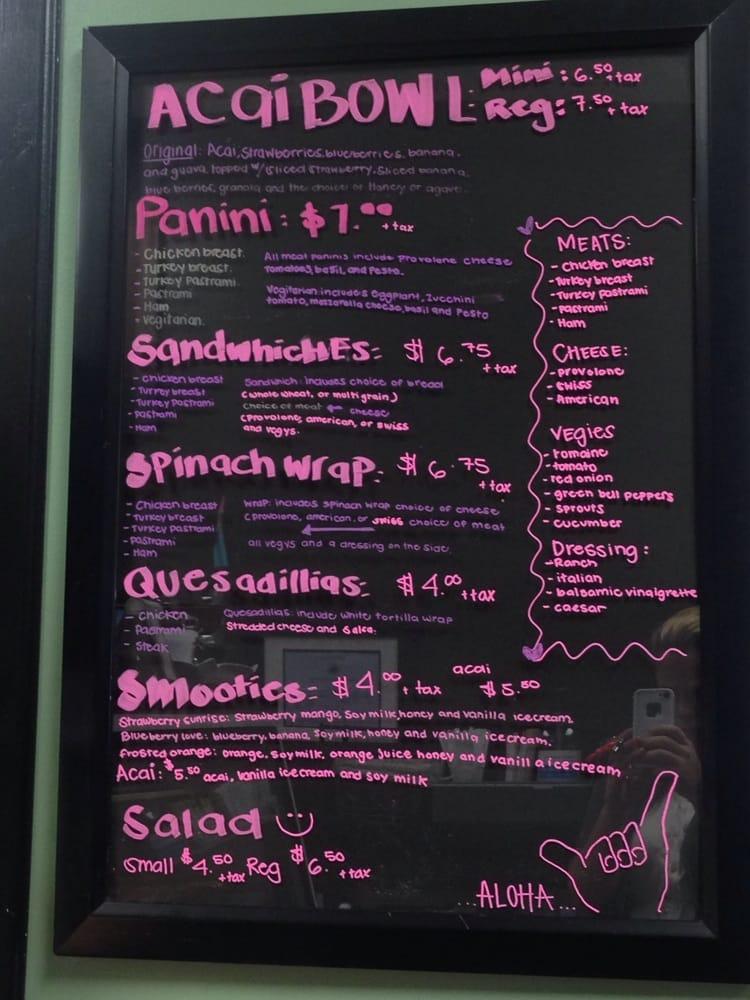 Acai BOWL: Mini: 6.50 + tax
Reg: 7.50 + tax
Original: Acai, Strawborries, blueberries, banana,
and guava, topped w/ (sliced strawberry, sliced banana,
blue berries, granola and the choice or Honey or agave.
Panini: $7.00 + tax
- Chicken breast.
- Turkey breast.
- Turkey Pastrami
- Pastrami
- Ham
- Vegitarian.
All meat paninis include provalone cheese
Tomatoes, basil, and Pesto.
Vegitarian: includes Eggplant, Zucchini
tomato, mozzarella cheese, basil and Pesto
SandwhichEs: $6.75
+ tax
- chicken breast
- Turrey breast
- Turkey Pastrami
- pastrami
- Ham
Sandwich: Includes choice of bread
(whole wheat, or multi grain)
choice of meat ← cheese
(Provalone, american, or swiss
and vegys.
Spinach Wrap: $6.75
+ tax
- Chicken breast
- Turkey breast
- Turkey Pastrami
- Pastrami
- Ham
Wrap: includes spinach wrap choice of cheese
(provolone, american, or swiss choice of meat
all vegys and a dressing on the side.
Quesadillias: $4.00 + tax
- Chicken
- Pastrami
- Steak
Quesadillas: include white tortilla wrap
Stredded cheese and Salsa.
Smooties: $4.00 + tax acai $5.50
Strawberry sunrise: Strawberry mango, Soy milk, honey and vanilla icecream.
Blueberry love: blueberry, banana, soymilk, honey and vanilla icecream.
frosted orange: orange, soy milk, orange juice honey and vanilla icecream
Acai: $5.50 acai, Vanilla icecream and soy milk
Salad
Small $4.50 + tax Reg $6.50 + tax
MEATS:
- chicken breast
- Turkey breast
- Turkey pastrami
- pastrami
- Ham
CHEESE:
- provolone
- swiss
- American
Vegies
- romaine
- tomato
- red onion
- green bell peppers
- sprouts
- cucumber
Dressing:
- Ranch
- italian
- balsamic vinaigrette
- caesar
...ALOHA...